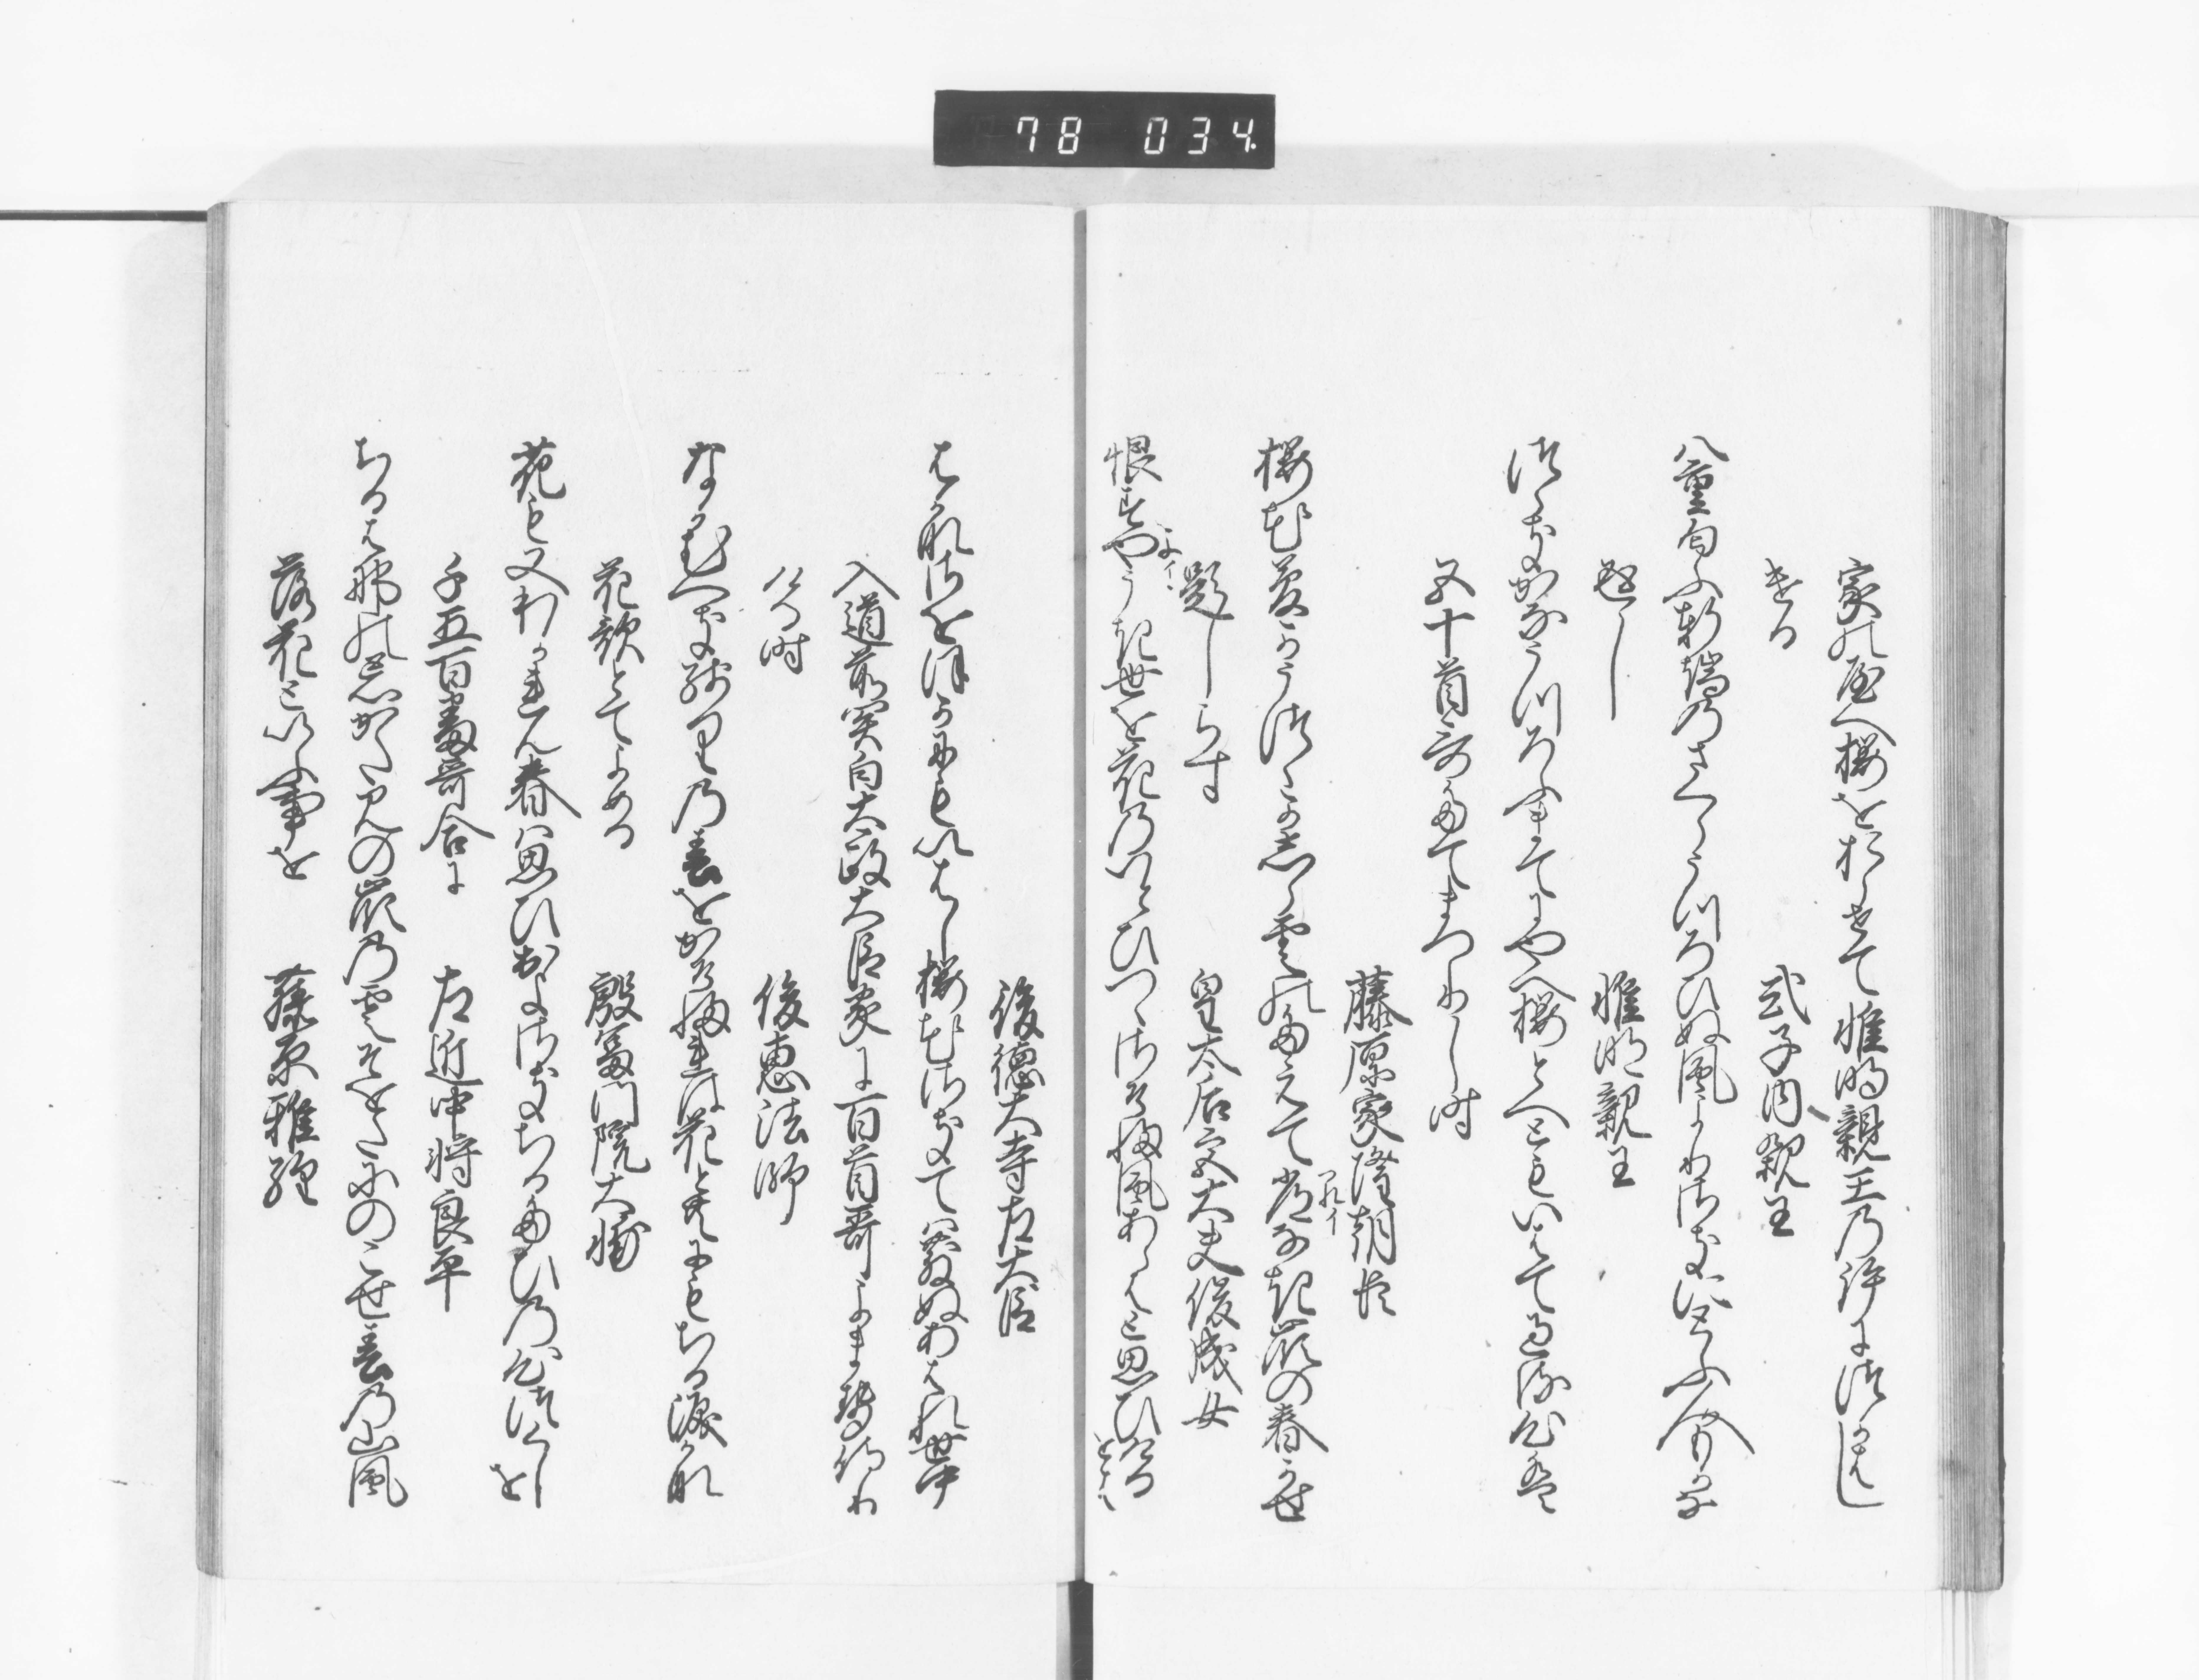 78 034
家の屋へ桜をおらせて惟明親王の許につかはし
ける 式子内親王
八重匂ふ軒端のさくらうつろひぬ風よりさきにとふ人もかな
返し 惟明親王
つらきかなうつろふまてにや八重桜とへともいはて過る心は
五十首哥たてまつりし時
藤原家隆朝臣
桜花夢かうつゝか白雲のたえてつねなき峯の春かせ
題しらす 皇太后宮大夫俊成女
恨すやうき世を花のいとひつゝさそふ風あらはと思ひける
よイ
をは
れイ
後徳大寺左大臣
はかなさをほかにもいはし桜花さきてはちりぬあはれ世中
入道前関白太政大臣家に百首哥よませ侍り
ける時 俊恵法師
なかむへき残りの春をかそふれは花とともにもちる涙かな
花歌とてよめる 殷富門院大輔
花も又わかれん春は思ひ出よさきちるたひの心つくしを
千五百番哥合に 左近中将良平
ちるはなのわすれかたみの峯の雲そをたにのこせ春の山風
落花といふ事を 藤原雅経